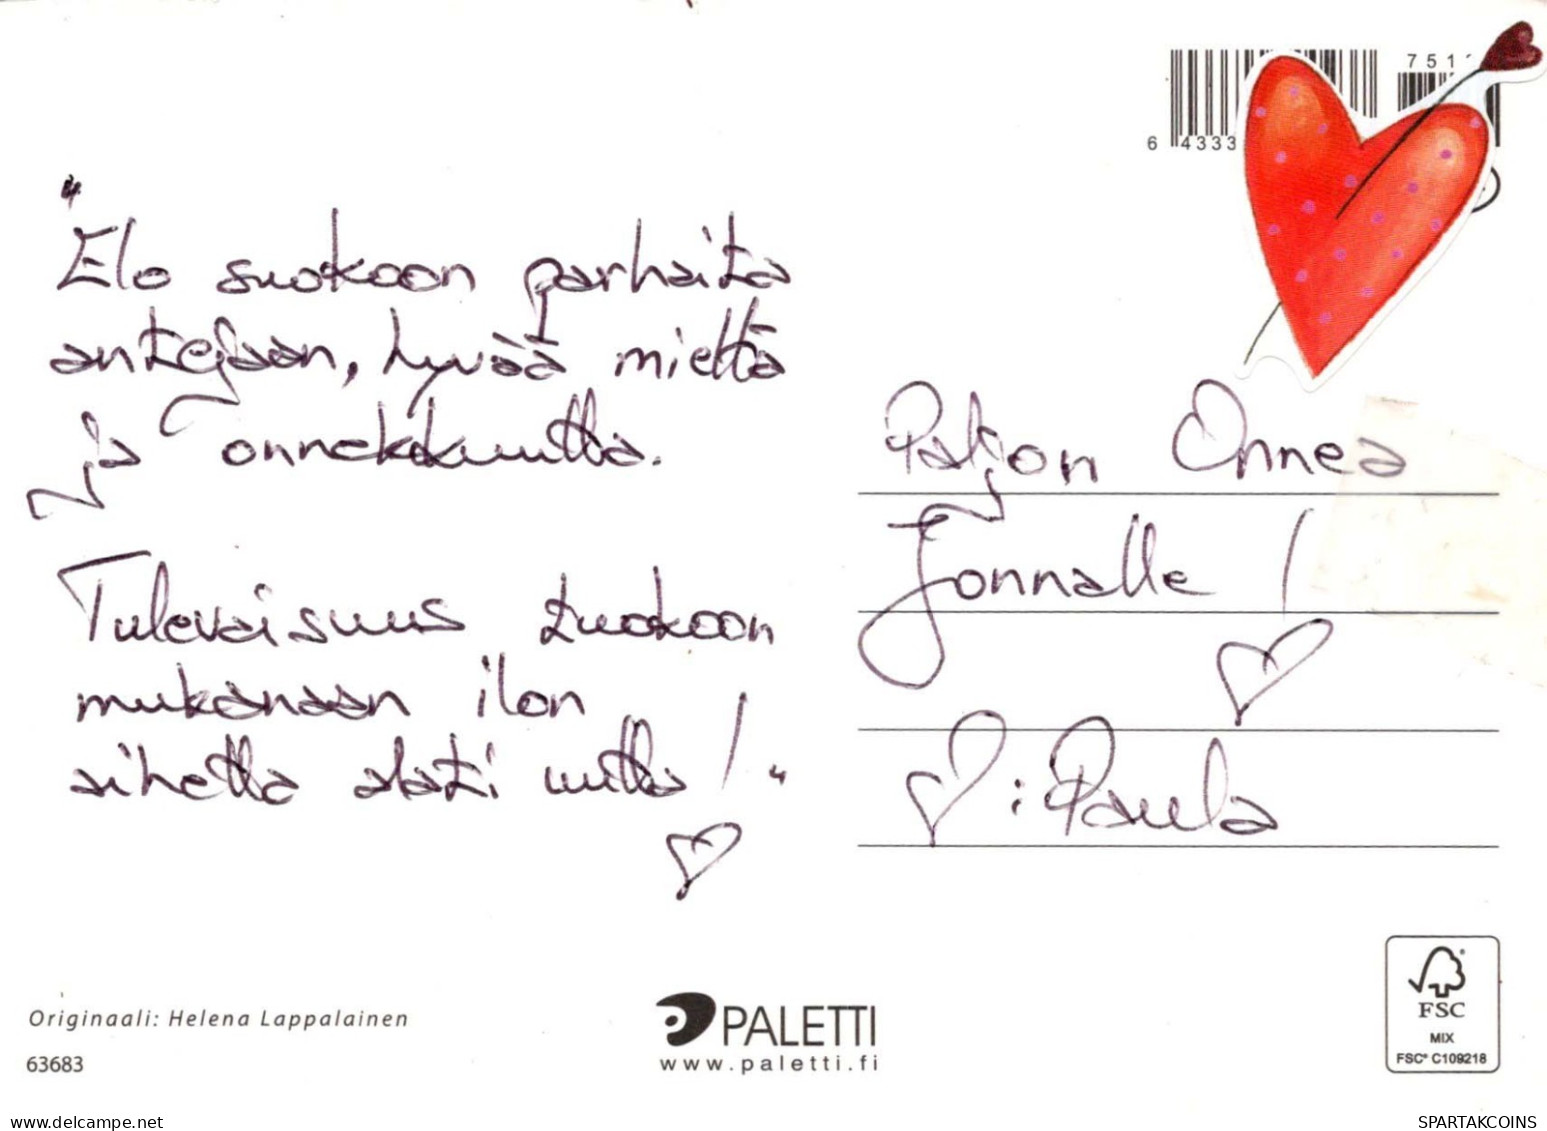 " Elo suokoon parhaita
antejaan, hyvää mieltä
ja onnekkuutta.
Tulevaisuus tuokoon
mukanaan ilon
aihetta alati uutta! "
6 4333
751
Paljon Onnea
Jonnalle !
: Paula
Originaali: Helena Lappalainen
63683
PALETTI
www.paletti.fi
FSC
MIX
FSC® C109218
www.delcampe.net
SPARTAKCOINS